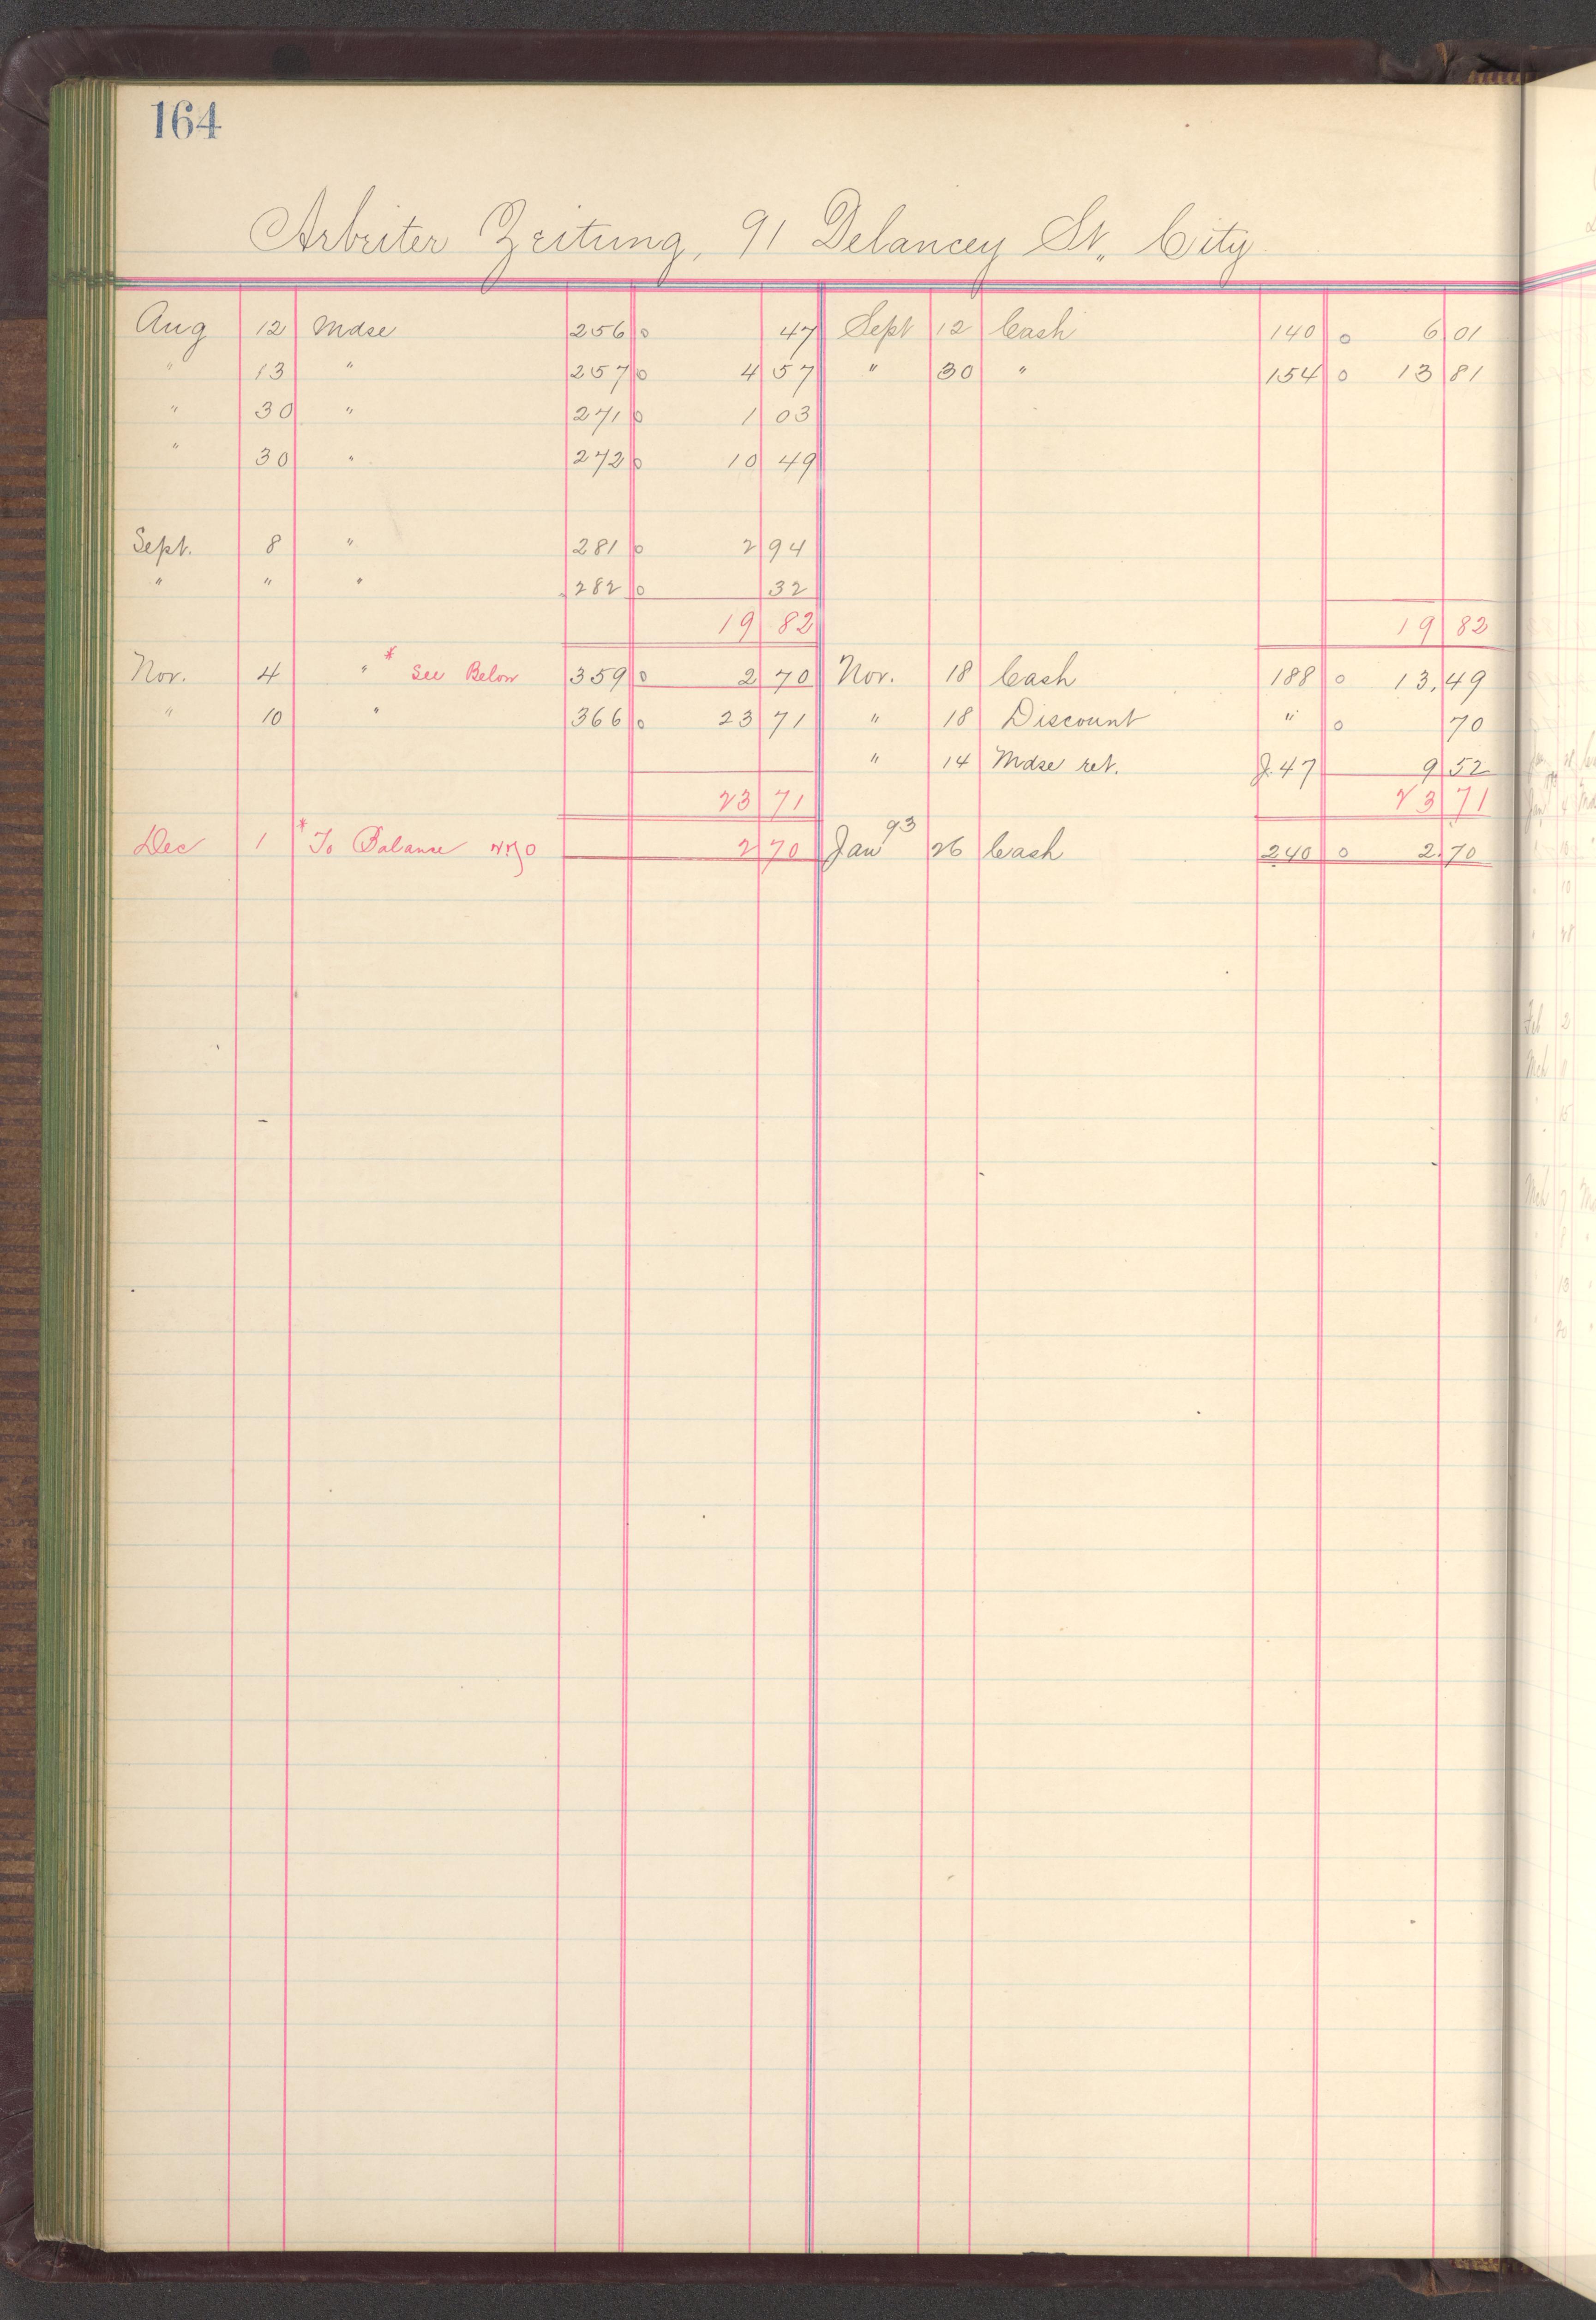 164
Arbeiter Zeitung, 91 Delancey St., City
Aug 12 Mdse 256 o 47 Sept 12 Cash 140 o 6 01
" 13 " 257 o 4 57 " 30 " 154 o 13 81
" 30 " 271 o 1 03
" 30 " 272 o 10 49
Sept. 8 " 281 o 2 94
" " " 282 o 32
19 82 19 82
Nov. 4 " * See Below 359 o 2 70 Nov. 18 Cash 188 o 13,49
" 10 " 366 o 23 71 " 18 Discount " o 70
" 14 Mdse ret. J. 47 9 52
23 71 23 71
Dec 1 * To Balance 2 70 Jan 93 26 Cash 240 o 2.70